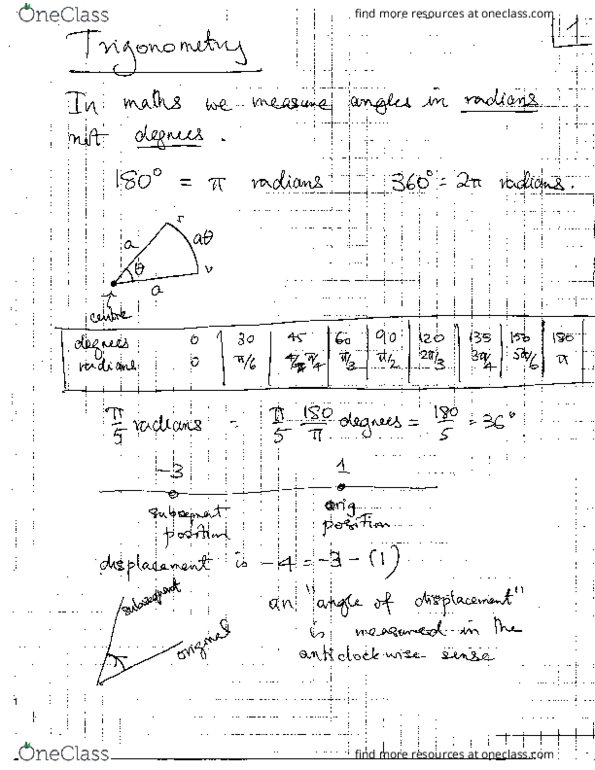 OneClass
find more resources at oneclass.com
1
Trigonometry
In maths we measure angles in radians
not degrees.
180° = π radians 360° = 2π radians.
r
a aθ
θ
a
centre
degrees 0 30 45 60 90 120 135 150 180
radians 0 π/6 π/4 π/3 π/2 2π/3 3π/4 5π/6 π
π/5 radians = π/5 180/π degrees = 180/5 = 36°
-3 1
subsequent orig
position position
displacement is -4 = -3 - (1)
subsequent
an "angle of displacement"
original
is measured in the
anticlockwise sense
OneClass
find more resources at oneclass.com